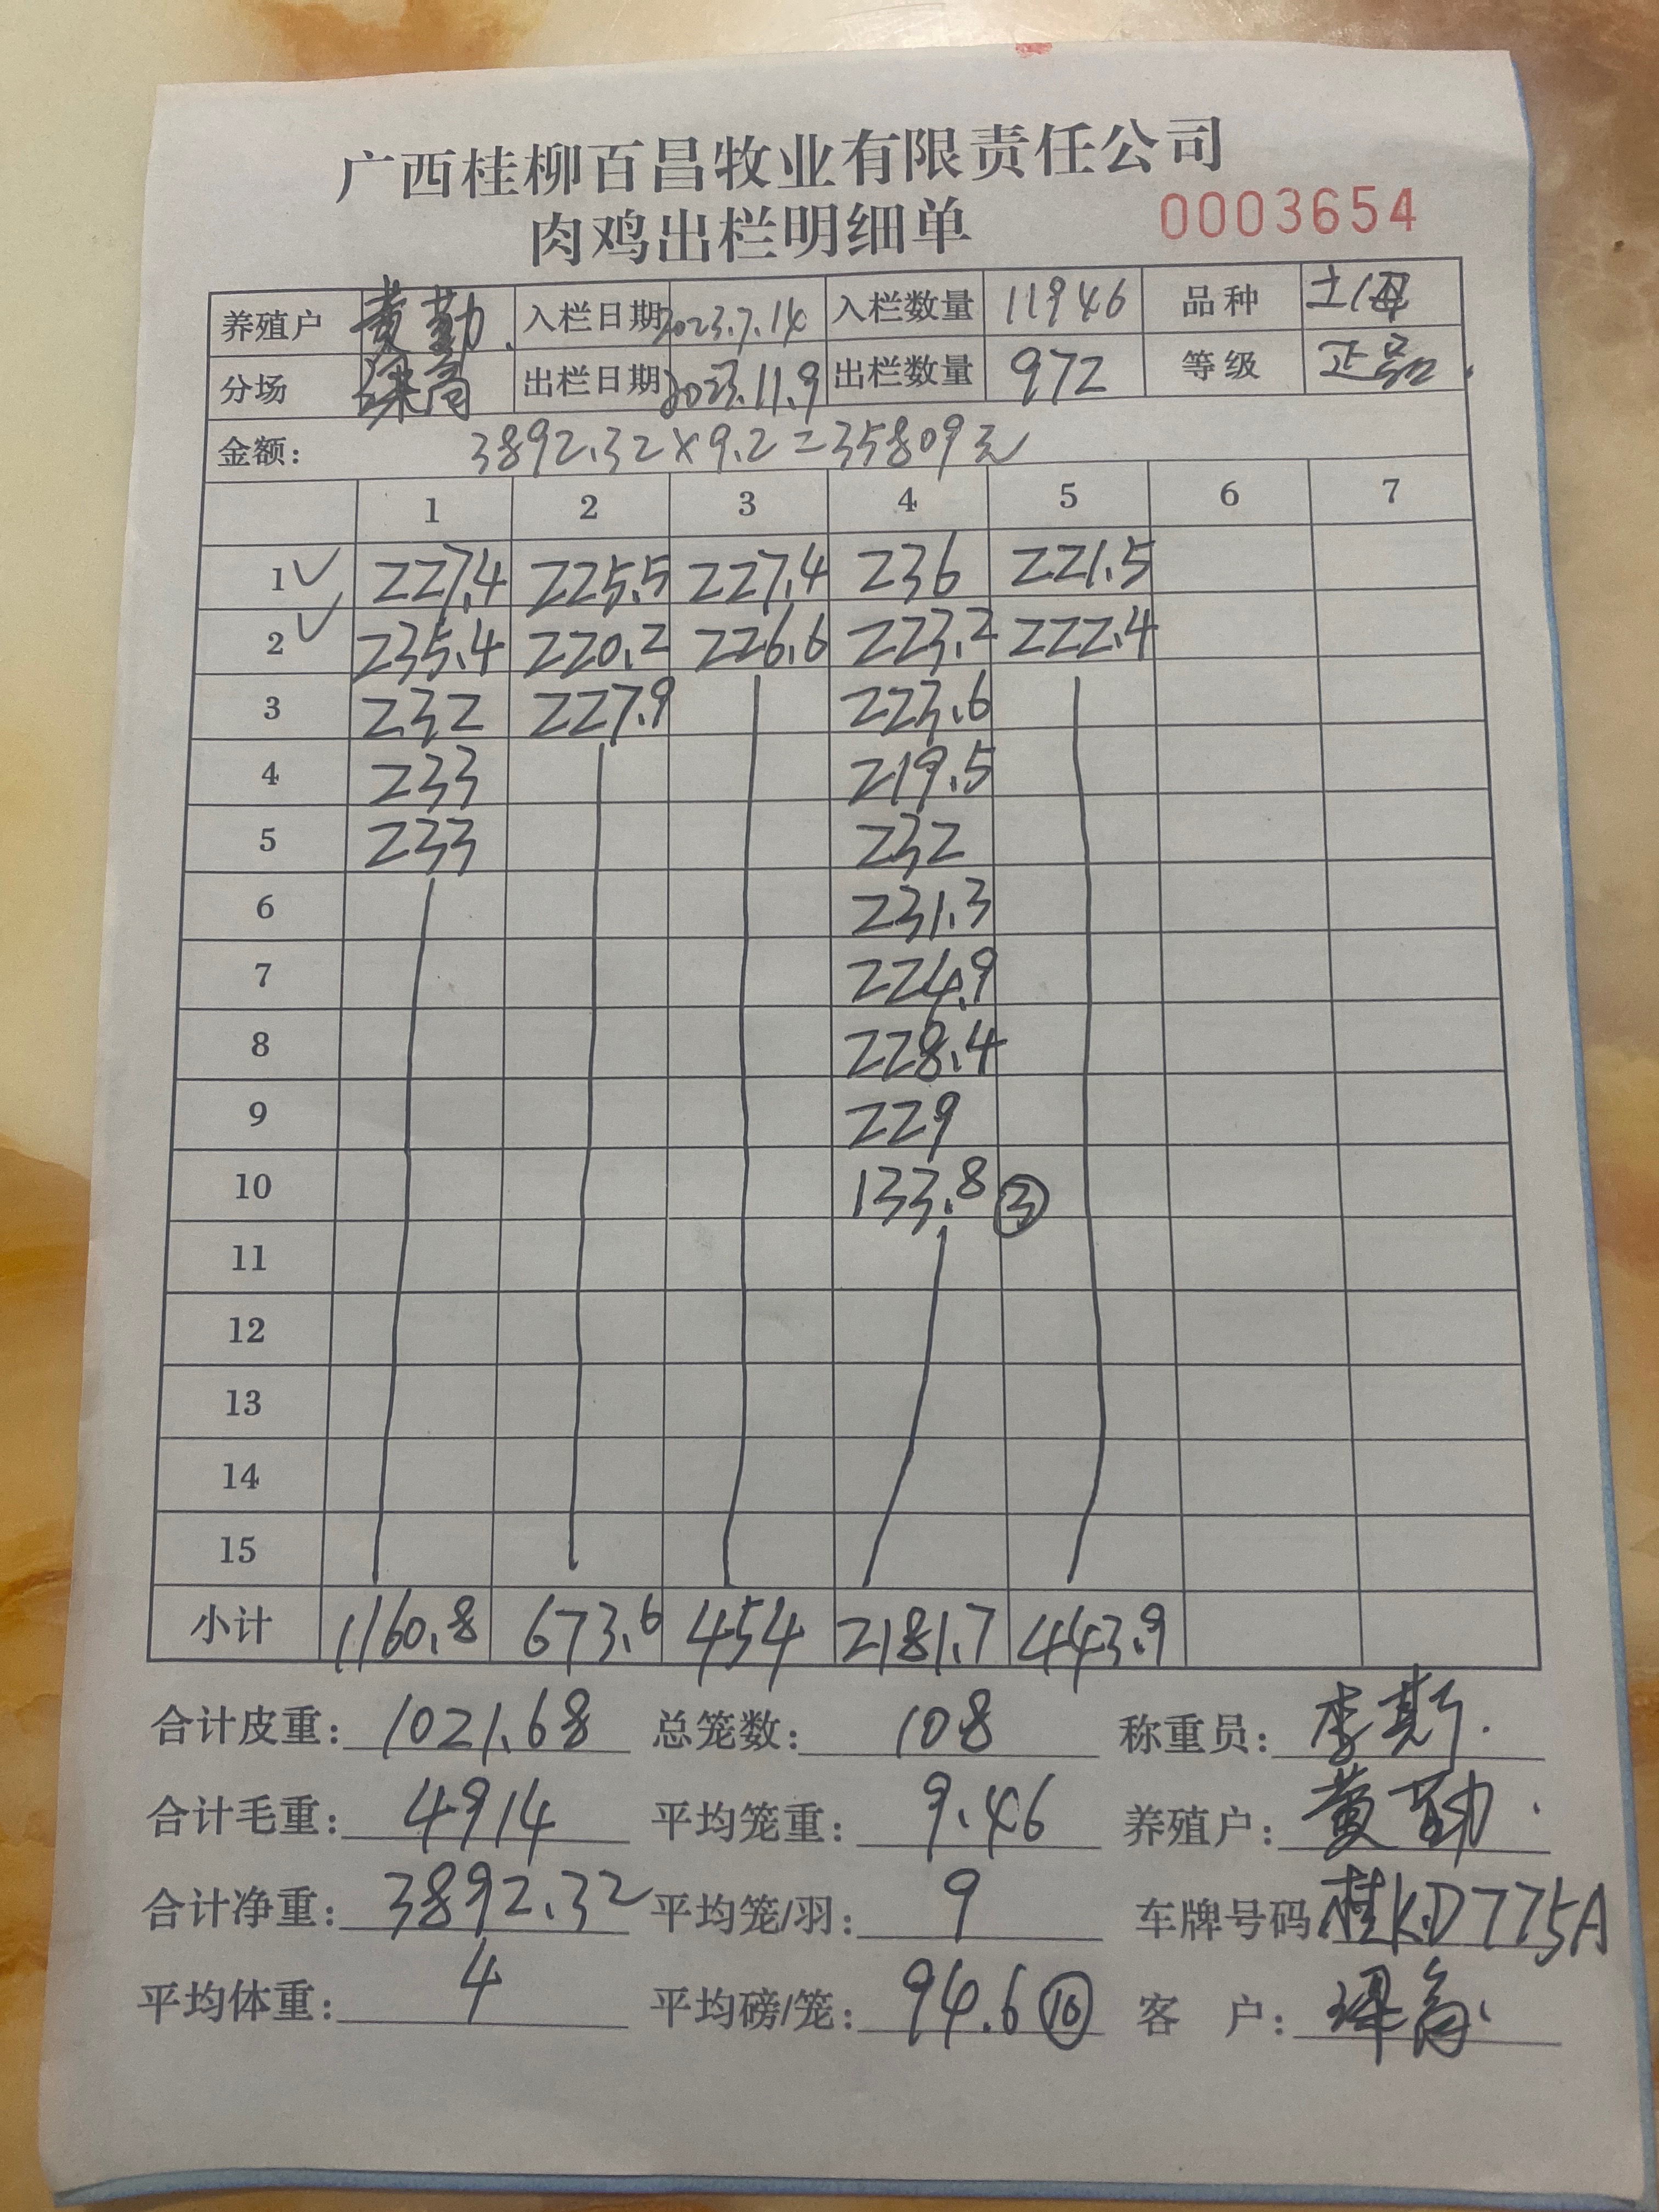 广西桂柳百昌牧业有限责任公司
肉鸡出栏明细单 0003654
养殖户 黄勤 入栏日期 2023.7.14 入栏数量 11946 品种 土母
分场 出栏日期 2023.11.9 出栏数量 972 等级 正品
金额: 3892.32×9.2=35809元
1 2 3 4 5 6 7
1✓ 227.4 225.5 227.4 236 221.5
2✓ 235.4 220.2 226.6 223.2 222.4
3 232 227.9 223.6
4 233 219.5
5 233 232
6 231.3
7 224.9
8 228.4
9 229
10 133.8 ③
11
12
13
14
15
小计 1160.8 673.6 454 2181.7 443.9
合计皮重: 1021.68 总笼数: 108 称重员: 李斯
合计毛重: 4914 平均笼重: 9.46 养殖户: 黄勤
合计净重: 3892.32 平均笼/羽: 9 车牌号码 桂KD775A
平均体重: 4 平均磅/笼: 94.6 ⑩ 客户: